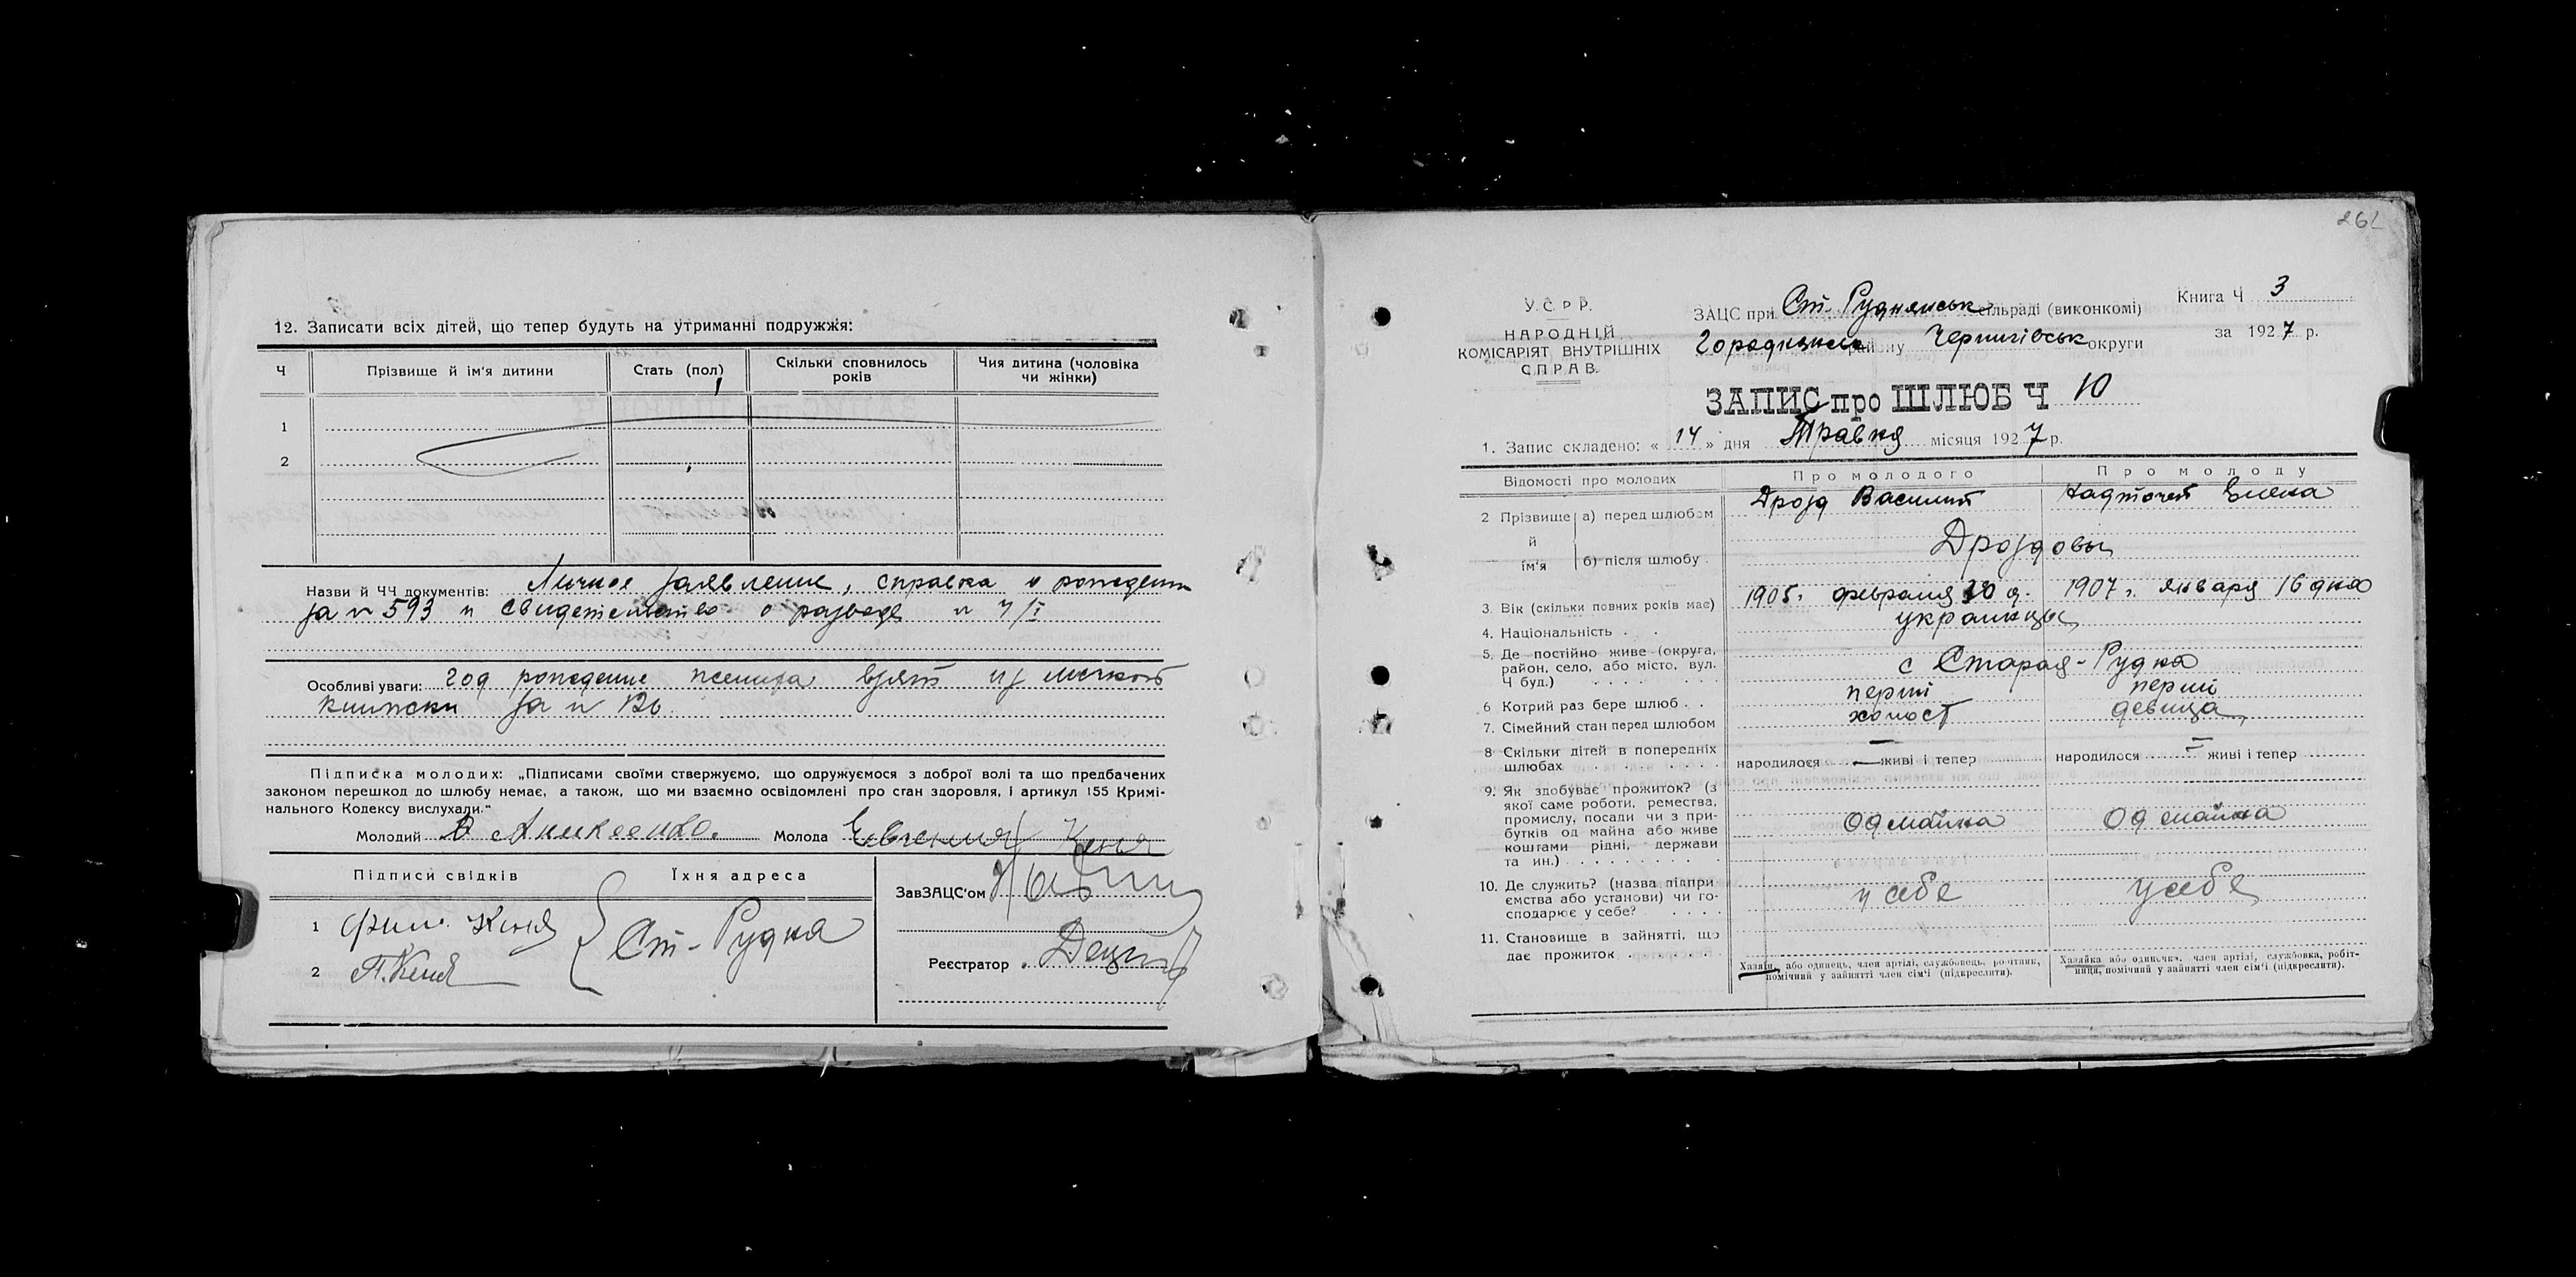 12. Записати всіх дітей, що тепер будуть на утриманні подружжя:
Ч Прізвище й ім'я дитини Стать (пол) Скільки сповнилось років Чия дитина (чоловіка чи жінки)
1
2
Назви й ЧЧ документів: Личное заявление, справка о рождении
за № 593 и свидетельство о разводе № 4/I
Особливі уваги: год рождение жениха взят из личной
книжки за №
Підписка молодих: „Підписами своїми стверджуємо, що одружуємося з доброї волі та що предбачених
законом перешкод до шлюбу немає, а також, що ми взаємно освідомлені про стан здоровля, і артикул 155 Кримі-
нального Кодексу вислухали."
Молодий Аникеенко. Молода Евгения Кеня
Підписи свідків Їхня адреса
ЗавЗАЦС'ом
1 Фил. Кеня Ст-Рудка
2 П. Кеня
Реєстратор
262
У.С.Р.Р.
НАРОДНІЙ
КОМІСАРІЯТ ВНУТРІШНІХ
СПРАВ.
ЗАЦС при Ст-Руднянськ сільраді (виконкомі)
району Чернигівськ округи
Книга Ч 3
за 1927 р.
ЗАПИС про ШЛЮБ Ч 10
1. Запис складено: « 14 » дня Травня місяця 1927 р.
Відомості про молодих Про молодого Про молоду
2 Прізвище й ім'я а) перед шлюбом Дрозд Василий Надточей Елена
б) після шлюбу Дроздовы
3. Вік (скільки повних років має) 1905 г. февраля д. 1907 г. января 16 дня
4. Національність . . украинцы
5. Де постійно живе (округа,
район, село, або місто, вул.
Ч буд.) . . . . с Старая-Рудка
6 Котрий раз бере шлюб . . перші перші
7. Сімейний стан перед шлюбом холост девица
8 Скільки дітей в попередніх
шлюбах . . . . . народилося — живі і тепер народилося — живі і тепер
9. Як здобуває прожиток? (з
якої саме роботи, ремества,
промислу, посади чи з при-
бутків од майна або живе
коштами рідні, держави
та ин.) . . . . . . . . . Од майна Од майна
10. Де служить? (назва підпри
ємства або установи) чи го-
сподарює у себе? . . . . у себе у себе
11. Становище в зайнятті, що
дає прожиток . . . . . .
Хазяїн, або одинець, член артілі, службовець, робітник,
помічний у зайнятті член сім'ї (підкреслити).
Хазяйка або одиначка, член артілі, службовка, робіт-
ниця, помічний у зайнятті член сім'ї (підкреслити).